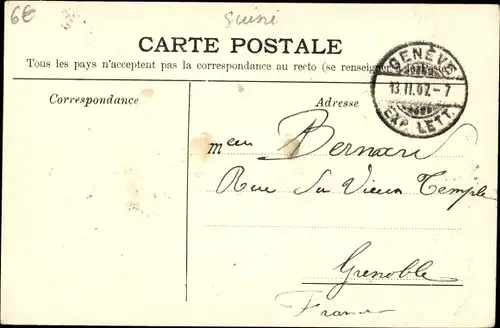 6€
Suisse
CARTE POSTALE
Tous les pays n'acceptent pas la correspondance au recto (se renseigner
GENÈVE
13 II.07.-7
EXP. LETT.
Correspondance
Adresse
Bernard
Rue du Vieux Temple
Grenoble
France